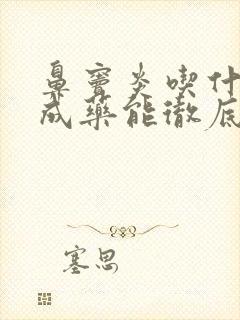 鼻窦炎喫什
成藥能徹底
塞思